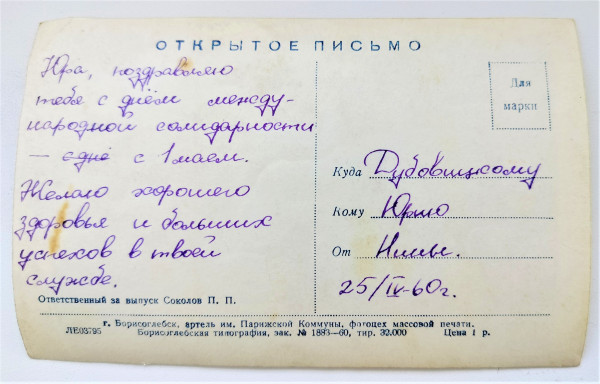 ОТКРЫТОЕ ПИСЬМО
Юра, поздравляю
тебя с днём между-
народной солидарности
— с 1 маем.
Желаю хорошего
здоровья и больших
успехов в твоей
службе.
Ответственный за выпуск Соколов П. П.
Для
марки
Куда Дубовицкому
Кому Юрию
От Нины.
25/IV-60г.
г. Борисоглебск, артель им. Парижской Коммуны, фотоцех массовой печати.
ЛЕ03795 Борисоглебская типография, зак. № 1883—60, тир. 32.000 Цена 1 р.